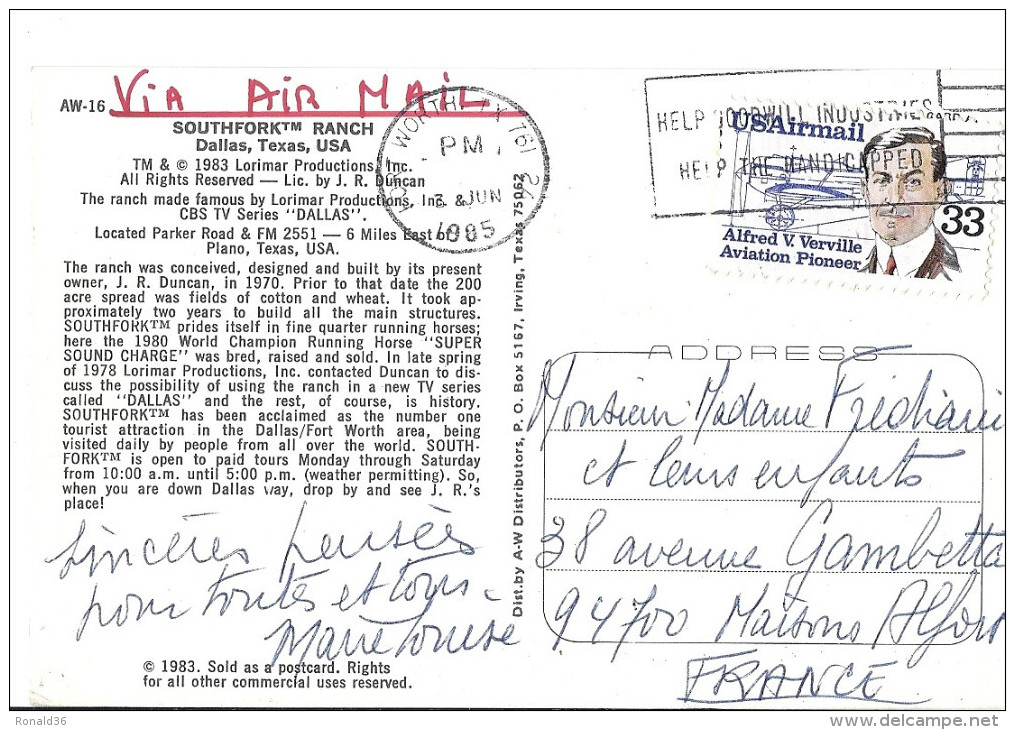 AW-16 Via AIR MAIL
SOUTHFORK™ RANCH
Dallas, Texas, USA
TM & © 1983 Lorimar Productions, Inc.
All Rights Reserved — Lic. by J. R. Duncan
The ranch made famous by Lorimar Productions, Inc. &
CBS TV Series "DALLAS".
Located Parker Road & FM 2551 — 6 Miles East of
Plano, Texas, USA.
The ranch was conceived, designed and built by its present
owner, J. R. Duncan, in 1970. Prior to that date the 200
acre spread was fields of cotton and wheat. It took ap-
proximately two years to build all the main structures.
SOUTHFORK™ prides itself in fine quarter running horses;
here the 1980 World Champion Running Horse "SUPER
SOUND CHARGE" was bred, raised and sold. In late spring
of 1978 Lorimar Productions, Inc. contacted Duncan to dis-
cuss the possibility of using the ranch in a new TV series
called "DALLAS" and the rest, of course, is history.
SOUTHFORK™ has been acclaimed as the number one
tourist attraction in the Dallas/Fort Worth area, being
visited daily by people from all over the world. SOUTH-
FORK™ is open to paid tours Monday through Saturday
from 10:00 a.m. until 5:00 p.m. (weather permitting). So,
when you are down Dallas way, drop by and see J. R.'s
place!
Sincères pensées
pour toutes et tous -
Marie Louise
© 1983. Sold as a postcard. Rights
for all other commercial uses reserved.
Dist.by A-W Distributors, P. O. Box 5167, Irving, Texas 75062
FORT WORTH, TX 761
PM
3 JUN
1985
HELP GOODWILL INDUSTRIES
HELP THE HANDICAPPED
USAirmail
33
Alfred V. Verville
Aviation Pioneer
ADDRESS
Monsieur Madame
et leurs enfants
38 avenue Gambetta
94700 Maisons Alfort
FRANCE
Ronald36
www.delcampe.net